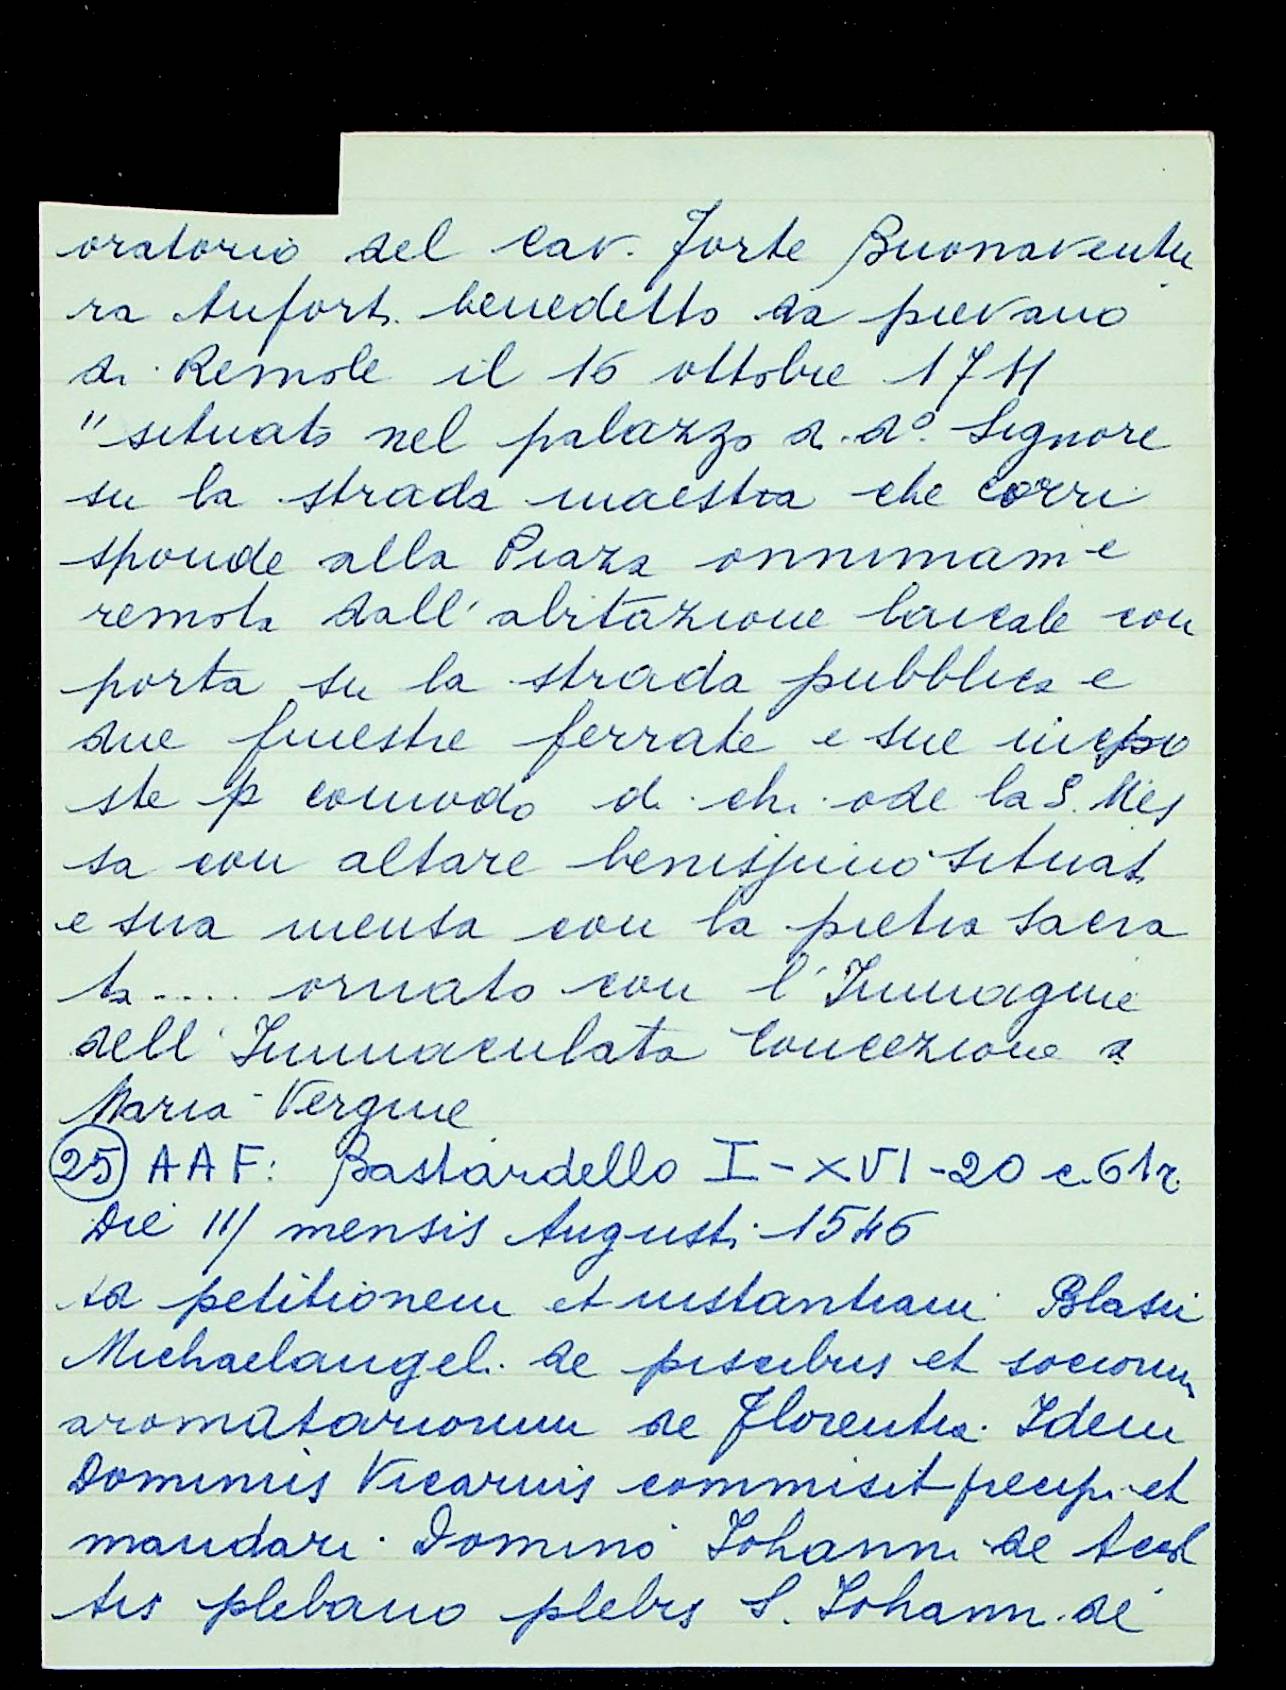 oratorio del Cav. Forte Buonaventu
ra Anforti benedetto da pievano
di Remole il 16 ottobre 1711
"situato nel palazzo d. do. Signore
su la strada maestra che corri
sponde alla Piaza onninam e
remota dall'abitazione laicale con
porta su la strada pubblica e
due finestre ferrate e sue impo
ste p comodo di chi ode la S. Mes
sa con altare benissimo situato
e sua mensa con la pietra sacra
ta .... ornato con l'Immagine
dell'Immaculata Concezione d
Maria Vergine
25 AAF: Bastardello I-XVI-20 c.61r.
Die III mensis Augusti 1546
Ad petitionem et instantiam Blasii
Michaelangeli de piscibus et sociorum
aromatariorum de Florentia. Idem
Dominus Vicarius commisit precipi et
mandari Domino Johanni de
plebano plebis S. Johanni de